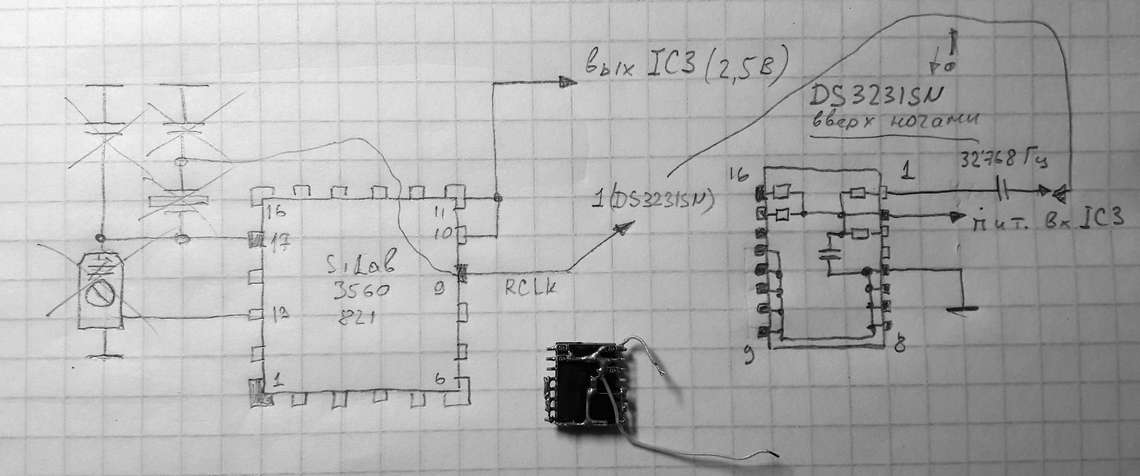 вых IC3 (2,5В)
DS3231SN
вверх ногами
32768 Гц
16
1
1 (DS3231SN)
пит. Вх IC3
16
11
17
10
SiLab
3560
821
9
RCLK
12
1
6
9
8